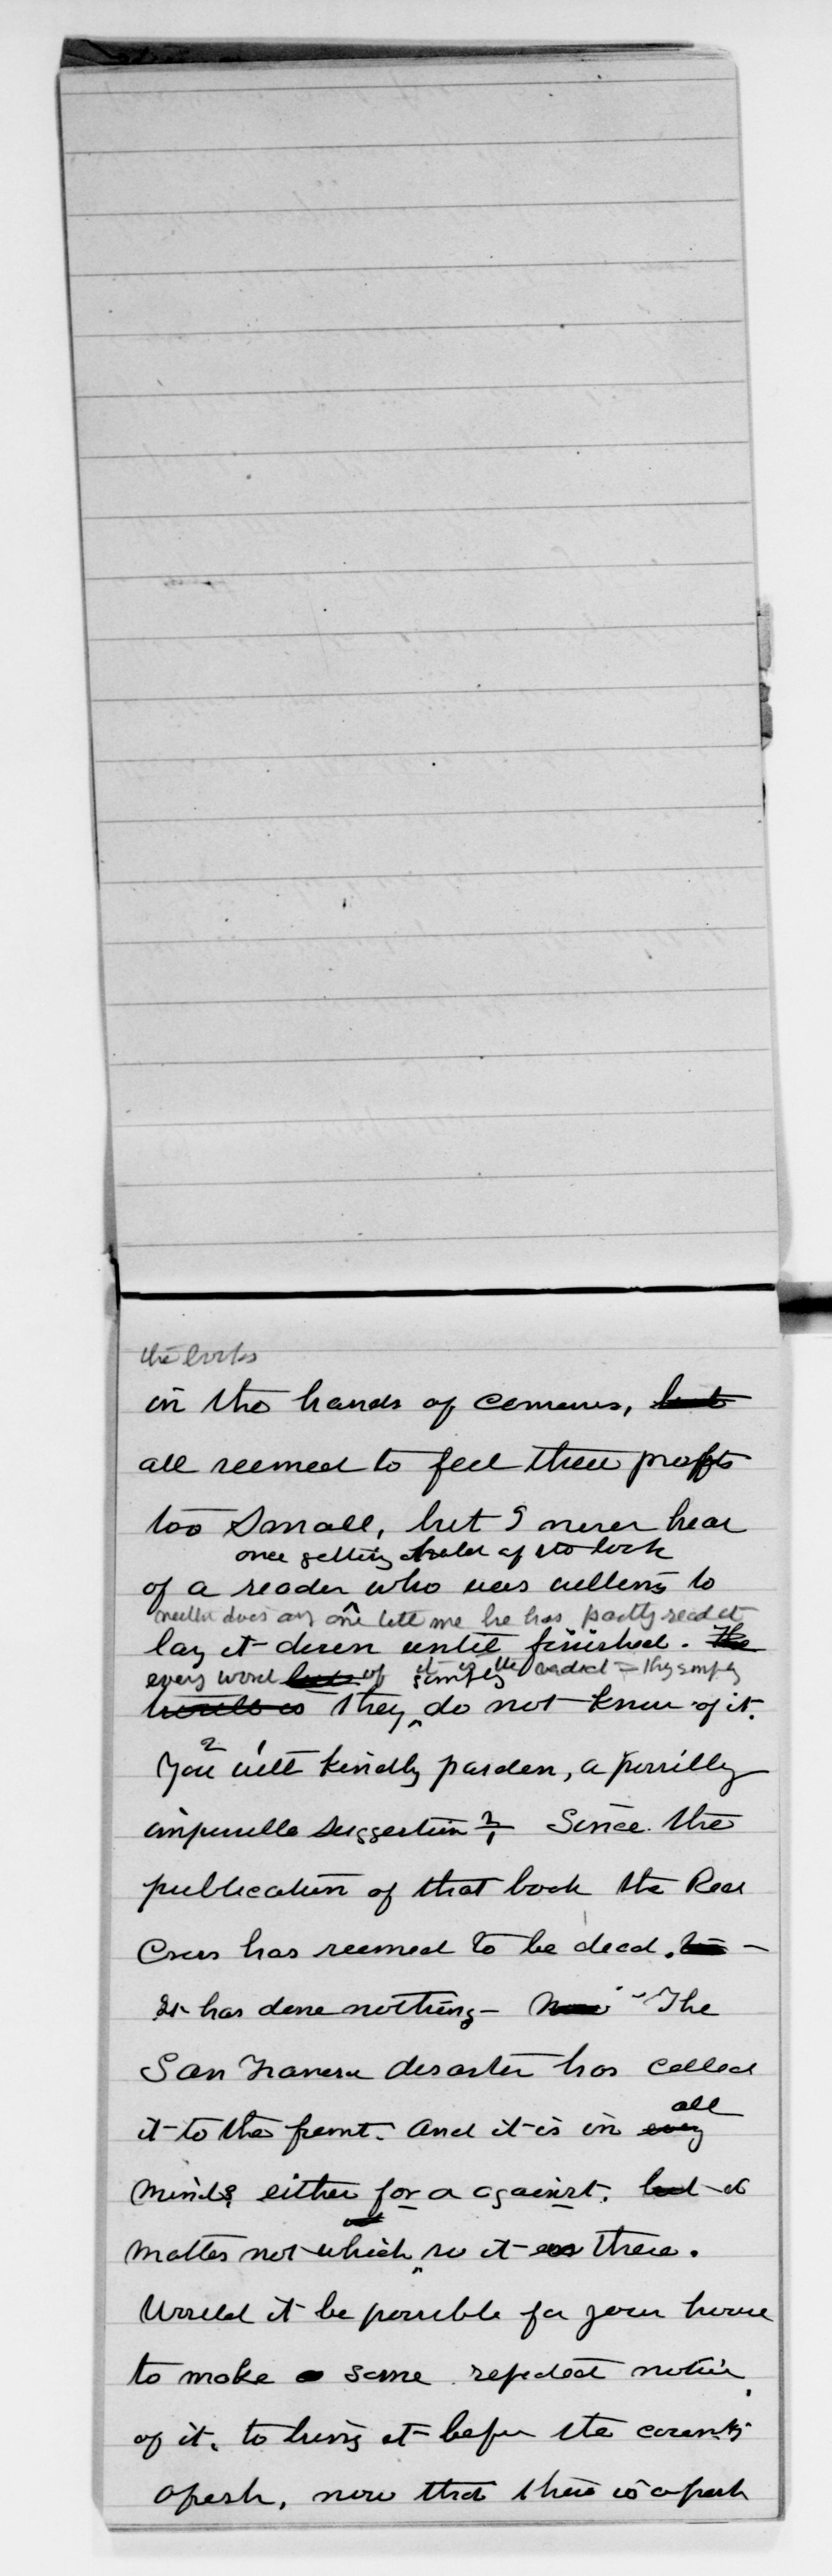 the books
in the hands of canvassers, but
all seemed to feel their profits
too small, but I never hear
once getting hold of the book
of a reader who was willing to
neither does any one tell me he has partly read it
lay it down until finished. The
every word of it is the verdict = they simply
they do not know of it.
You will kindly pardon, a possibly
suggestion? Since the
publication of that book the Red
Cross has seemed to be dead.
It has done nothing - Now "The
San Francisco disaster has called
it to the front. And it is in every
all
minds either for or against. but it
matters not which, so it is there.
Would it be possible for your house
to make a some repeated notice
of it, to bring it before the country
afresh, now that there is a fresh